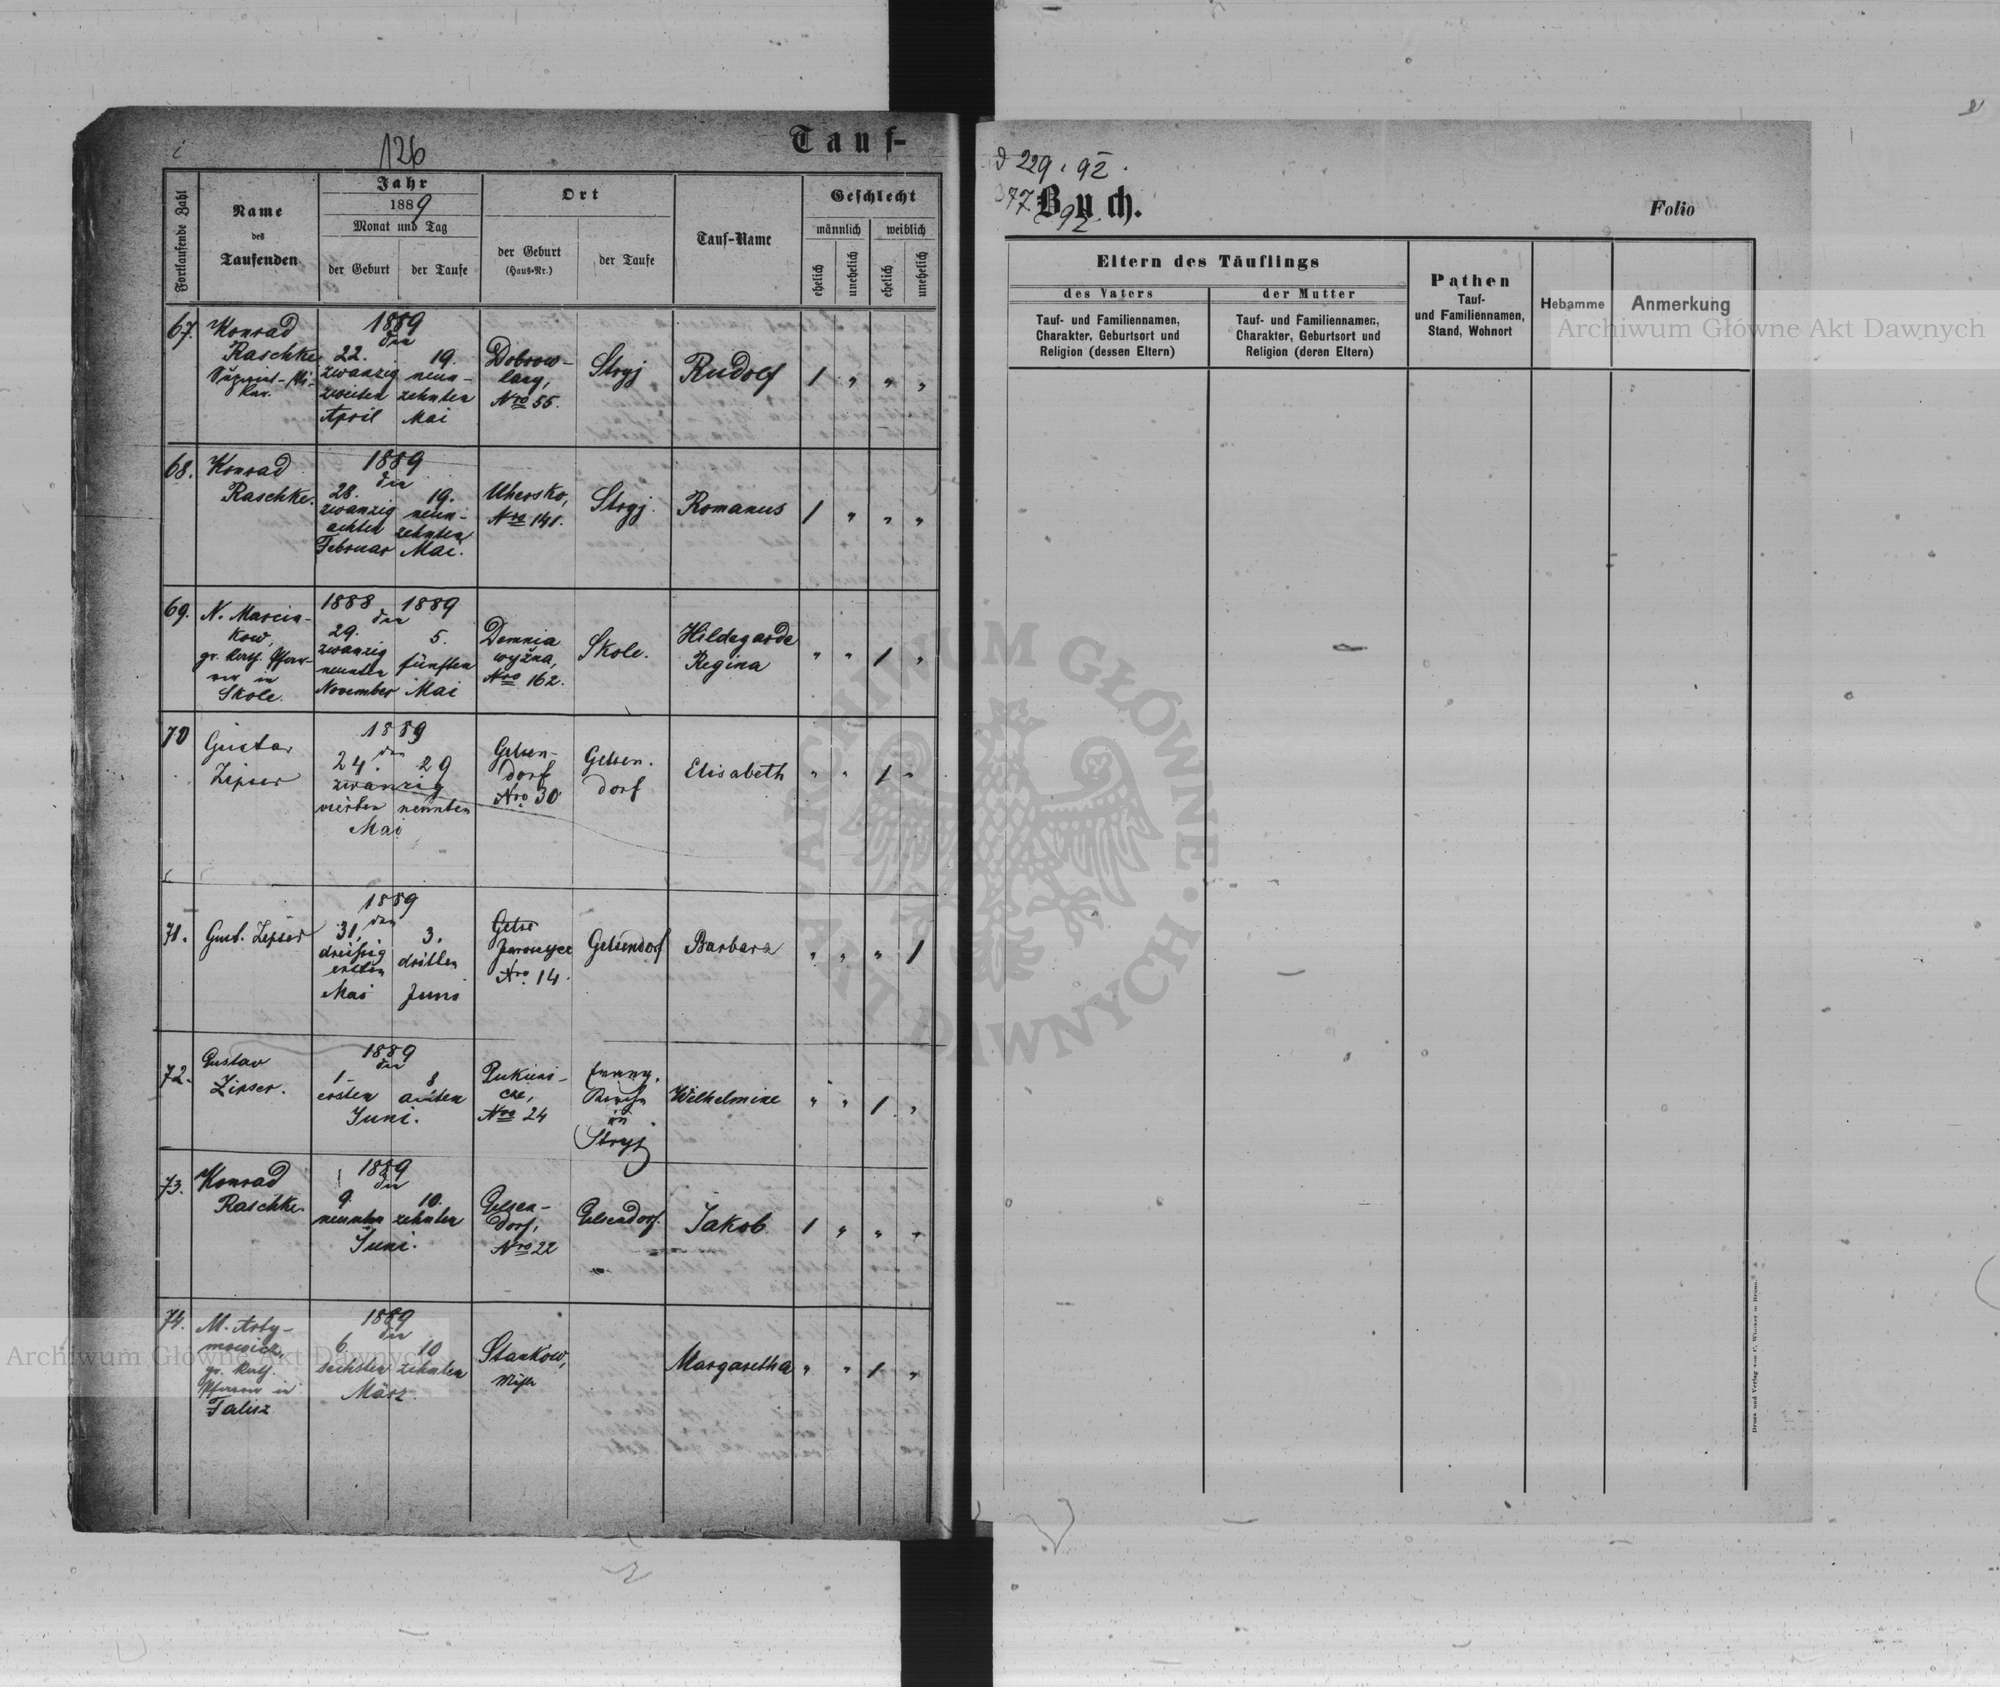 126
Tauf-
Fortlaufende Zahl
Name
des
Taufenden
Jahr
1889
Monat und Tag
der Geburt
der Taufe
Ort
der Geburt
(Haus-Nr.)
der Taufe
Tauf-Name
Geschlecht
männlich
weiblich
ehelich
unehelich
ehelich
unehelich
67.
Konrad
Raschke
1889
den
22.
zwanzig
zweiten
April
19.
neun-
zehnten
Mai
Dobrow-
lany,
Nro 55.
Stryj
Rudolf
1 " " "
68.
Konrad
Raschke.
1889
den
28.
zwanzig
achten
Februar
19.
neun-
zehnten
Mai.
Uhersko,
Nro 141.
Stryj.
Romanus
1 " " "
69.
N. Marcin-
kow,
gr. kath. Pfar-
rer in
Skole.
1888 1889
den
29.
zwanzig
neunten
November
5.
fünften
Mai
Demnia
wyżna,
Nro 162.
Skole.
Hildegarde
Regina
" " 1 "
70
Gustav
Zipser
1889
den
24. 29
zwanzig
vierten neunten
Mai
Gelsen-
dorf
Nro 30
Gelsen-
dorf
Elisabeth
" " 1 "
71.
Gust. Zipser
1889
den
31.
dreißig
ersten
Mai
3.
dritten
Juni
Nro. 14.
Gelsendorf
Barbara
" " " 1
72.
Gustav
Zipser.
1889
den
1. 8
ersten achten
Juni.
Pukieni-
cze,
Nro 24
evang.
Kirche
in
Stryj
Wilhelmine
" " 1 "
73.
Konrad
Raschke.
1889
den
9. 10.
neunten zehnten
Juni.
Gelsen-
dorf,
Nro 22
Gelsendorf.
Jakob
1 " " "
74.
M. Arty-
mowicz,
gr. kath.
Pfarrer in
Falisz
1889
den
6. 10
sechsten zehnten
März.
Stankow,
Margaretha
" " 1 "
229 92.
Buch.
92.
Folio
Eltern des Täuflings
des Vaters
Tauf- und Familiennamen,
Charakter, Geburtsort und
Religion (dessen Eltern)
der Mutter
Tauf- und Familiennamen,
Charakter, Geburtsort und
Religion (deren Eltern)
Pathen
Tauf-
und Familiennamen,
Stand, Wohnort
Hebamme
Anmerkung
Archiwum Główne Akt Dawnych
Archiwum Główne Akt Dawnych
ARCHIWUM GŁÓWNE · AKT DAWNYCH ·